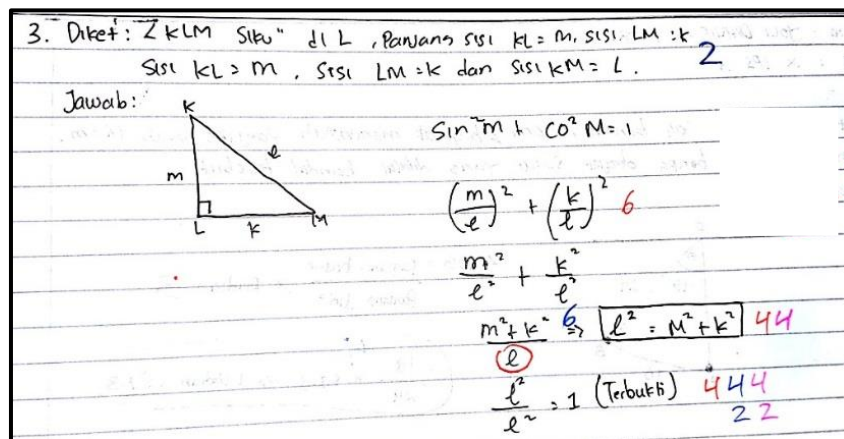 3. Diket : ∠ KLM siku" di L , Panjang sisi KL = m, sisi LM = k
sisi KL = m , sisi LM = k dan sisi KM = L . 2
Jawab :
K
m
l
L
k
M
Sin² m + Co² M = 1
(m/l)² + (k/l)² 6
m²/l² + k²/l²
m² + k² / l 6 => l² = M² + k² 4 4
l²/l² = 1 (Terbukti) 4 4 4
2 2